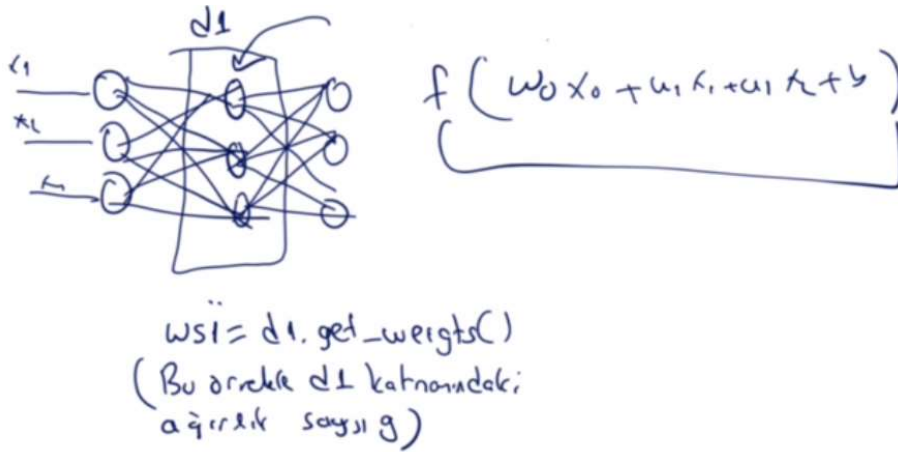 d1
x1
x2
f(w0x0 + w1x1 + w1x2 + b)
wsi = d1.get_weigts()
(Bu örnekte d1 katmanındaki
ağırlık sayısı 9)